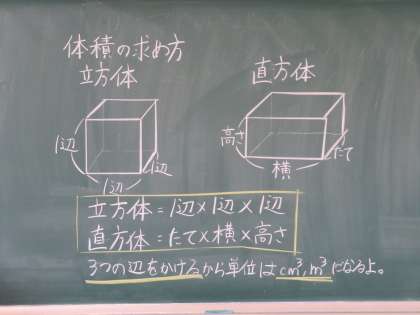 体積の求め方
立方体
直方体
1辺
1辺
1辺
高さ
たて
横
立方体=1辺×1辺×1辺
直方体=たて×横×高さ
3つの辺をかけるから単位はcm³,m³になるよ。